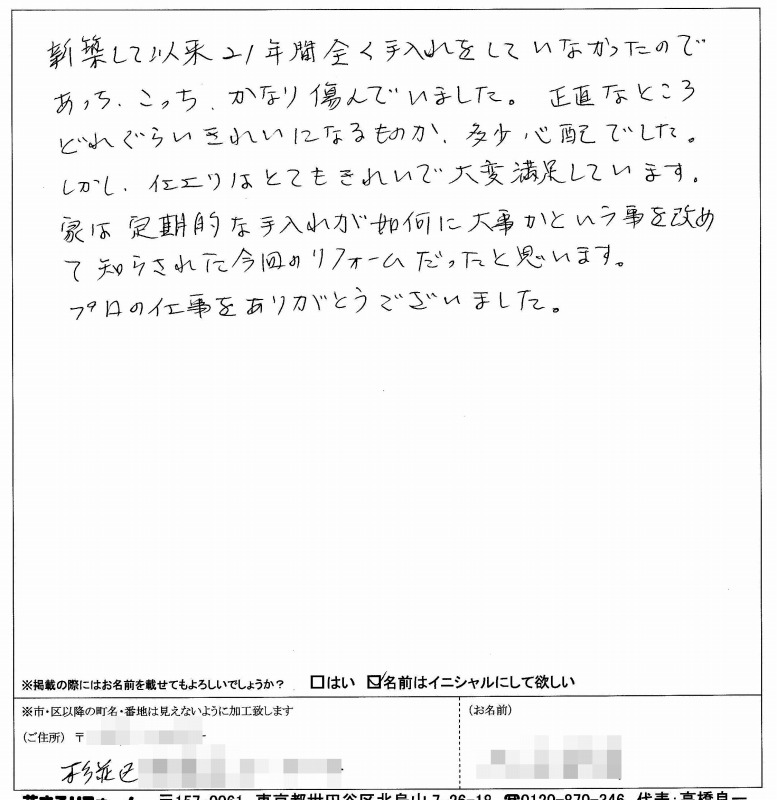 新築して以来21年間全く手入れをしていなかったので
あっち、こっち、かなり傷んでいました。正直なところ
どれぐらいきれいになるものか、多少心配でした。
しかし、仕上りはとてもきれいで大変満足しています。
家は定期的な手入れが如何に大事かという事を改め
て知らされた今回のリフォームだったと思います。
プロの仕事をありがとうございました。
※掲載の際にはお名前を載せてもよろしいでしょうか? □はい ☑名前はイニシャルにして欲しい
※市・区以降の町名・番地は見えないように加工致します
(お名前)
(ご住所) 〒
杉並区
〒157-0061 東京都世田谷区北烏山7-26-18 ☎0120-870-346 代表:高橋良一